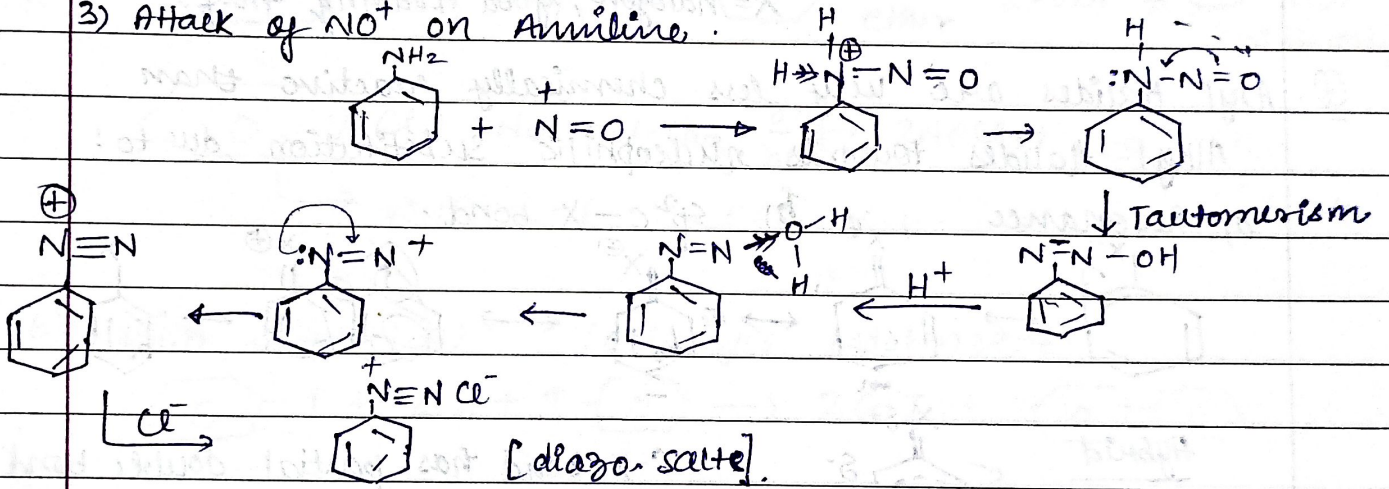 3) Attack of NO⁺ on Anniline.
NH₂ + N⁺=O → H-N⊕(H)-N=O → H :N-N=O
↓ Tautomerism
N⊕≡N ← :N=N⁺ ← N=N-O-H H ← H⁺ N=N-OH
Cl⁻ → N⁺≡N Cl⁻
[diazo. salte].